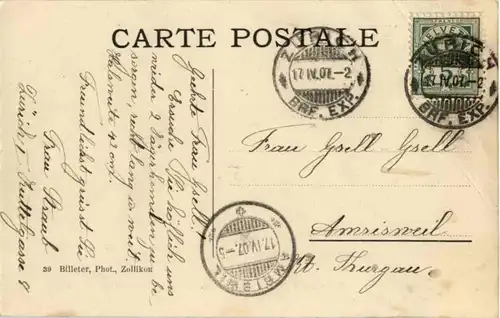 CARTE POSTALE
HELVETIA
ZÜRICH
17.IV.07.-2
BRF. EXP.
ZÜRICH
17.IV.07.-2
BRF. EXP.
Geehrte Frau Gsell!
Ersuche Sie höflich uns
wieder 2 Däuschemden zu be
sorgen, recht lang u. weit.
Halsweite 42 cm.
Freundlichst grüsst Sie
Frau Straub
Zürich I Kuttelgasse 9
Frau Gsell-Gsell
Amrisweil
Kt. Thurgau.
AMRISWIL
17.IV.07.-5
39 Billeter, Phot., Zollikon